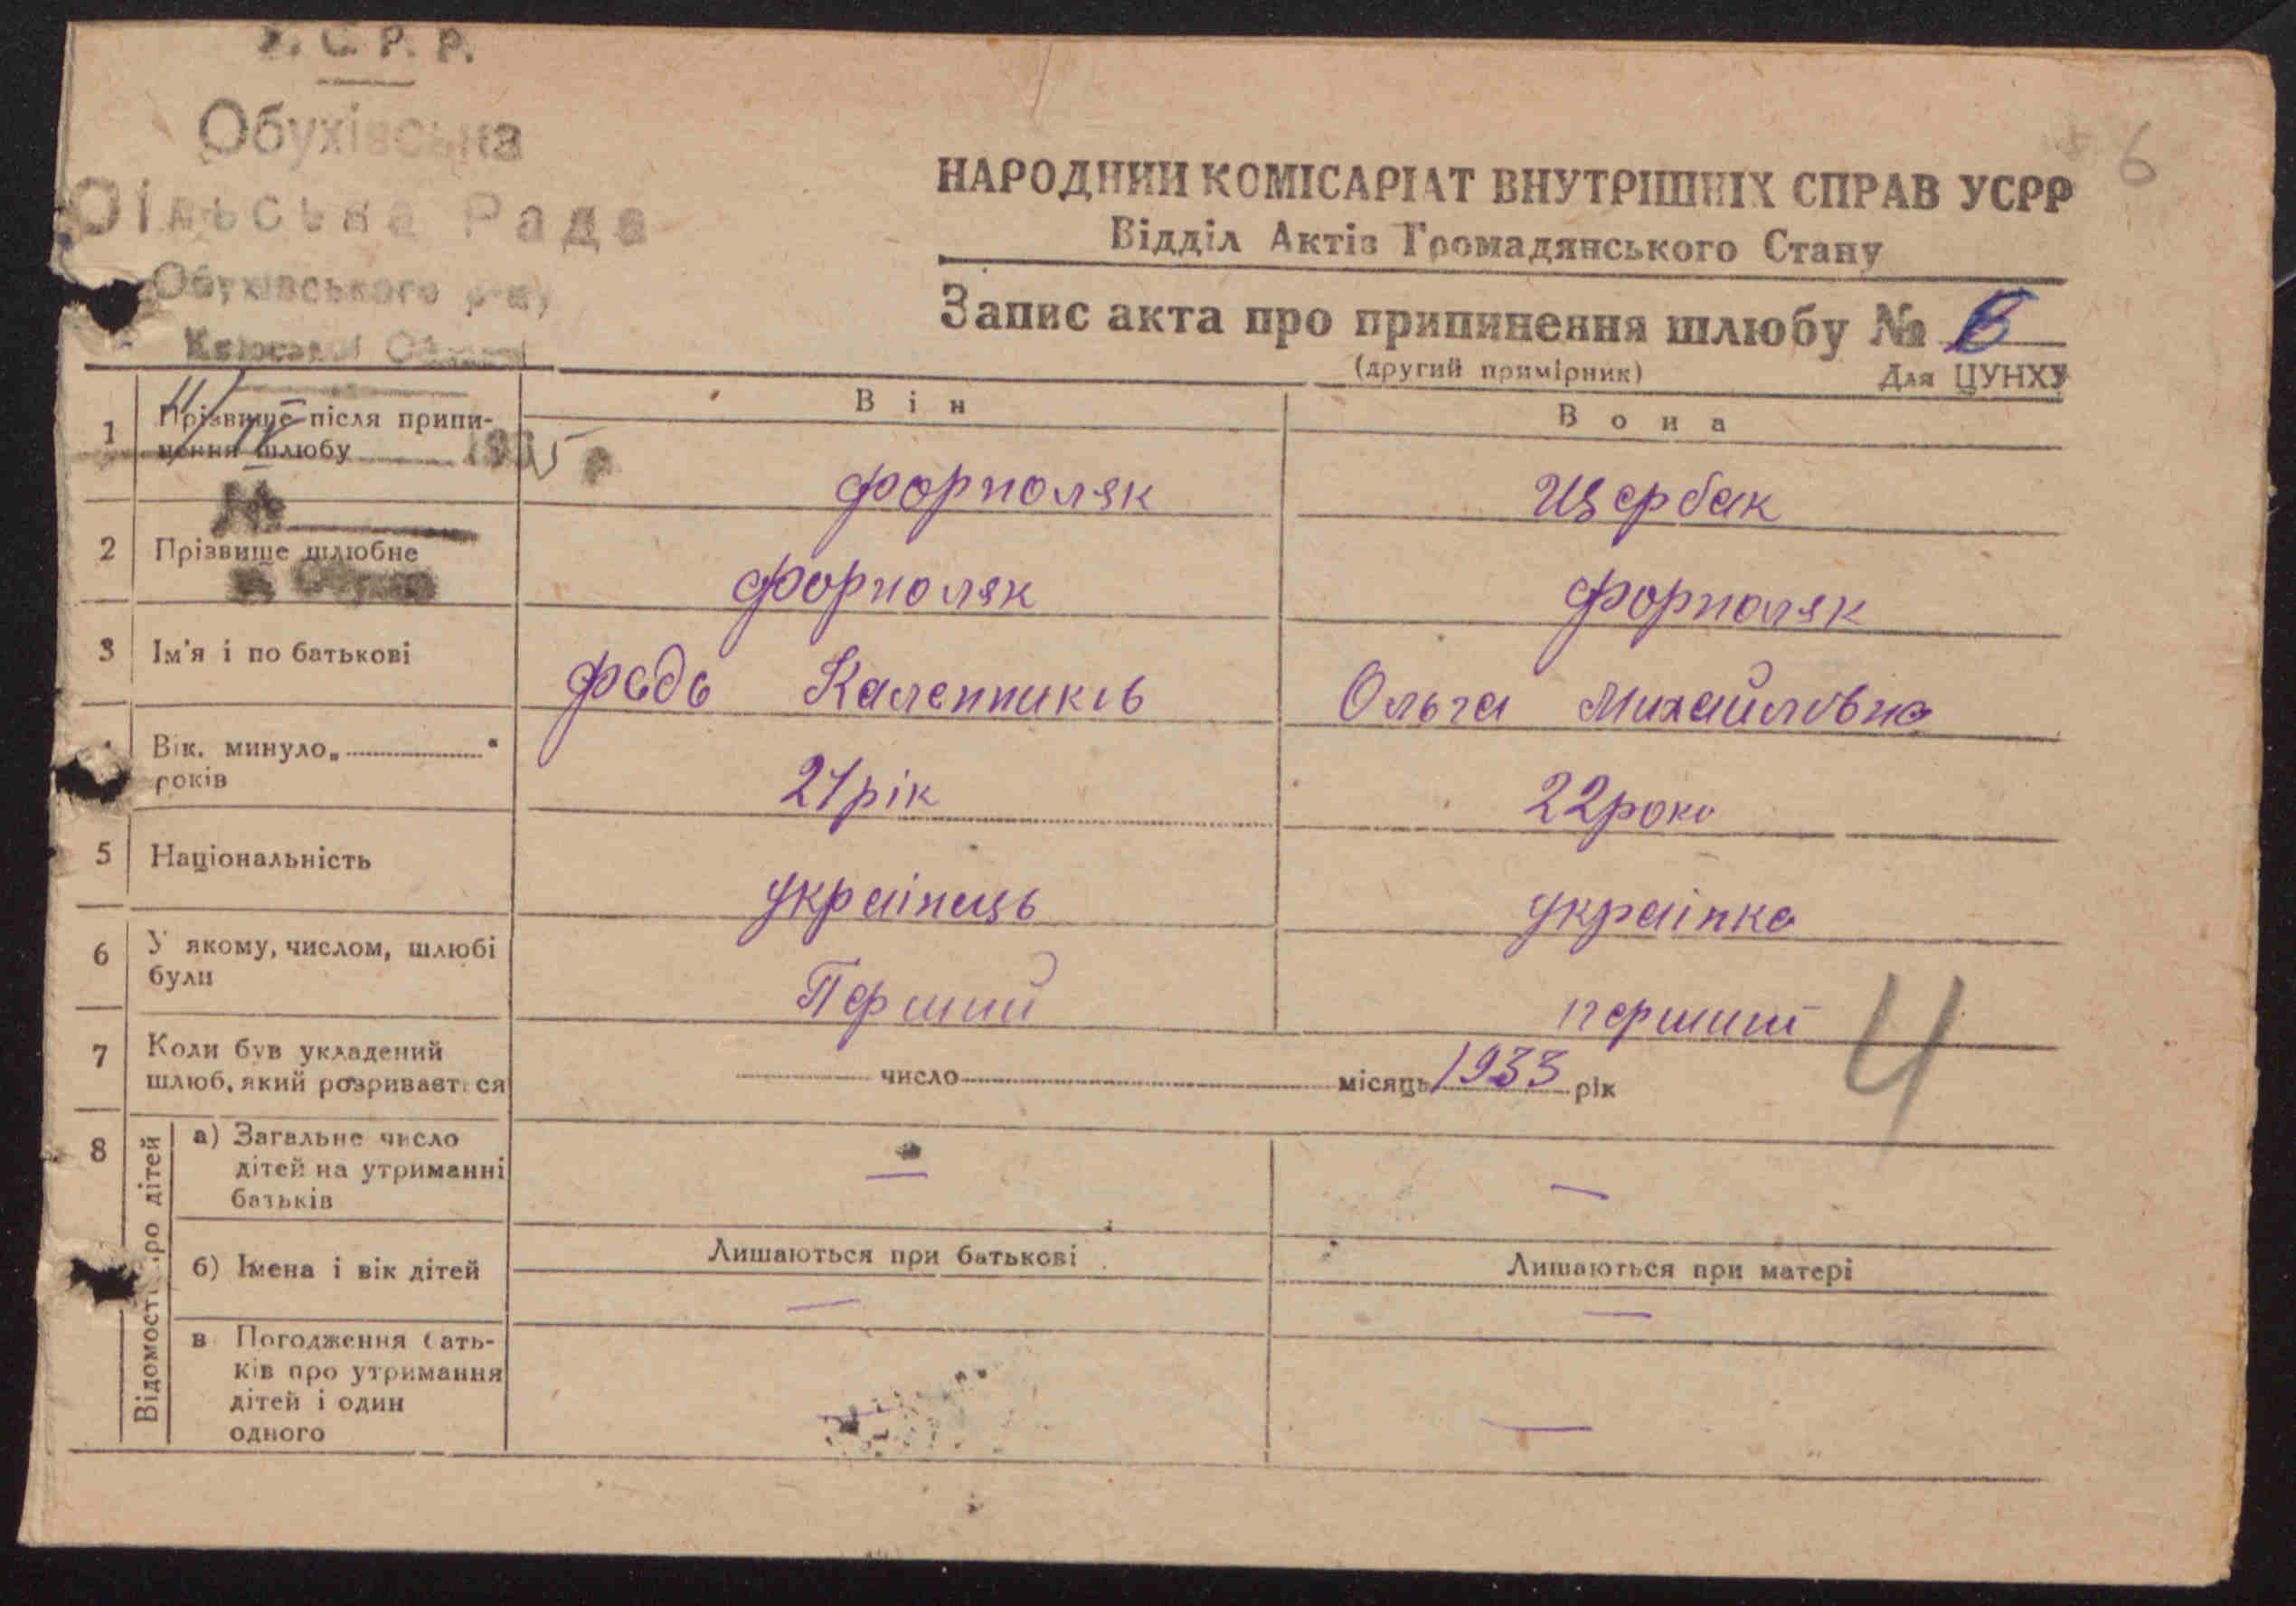 У.С.Р.Р.
Обухівська
Сільська Рада
Обухівського р-ну
Київської Області
6
НАРОДНИЙ КОМІСАРІАТ ВНУТРІШНІХ СПРАВ УСРР
Відділ Актів Громадянського Стану
Запис акта про припинення шлюбу № 6
(другий примірник) Для ЦУНХУ
Він Вона
1 Прізвище після припи-
нення шлюбу
193 р
форполяк Щербак
№
2 Прізвище шлюбне форполяк форполяк
3 Ім'я і по батькові федь Каленників Ольга Михайлівна
Вік. минуло „ "
років
21 рік 22 роки
5 Національність українець українка
6 У якому, числом, шлюбі
були
Перший перший
4
7 Коли був укладений
шлюб, який розривається
число місяць 1933 рік
8 Відомості про дітей
а) Загальне число
дітей на утриманні
батьків
— —
б) Імена і вік дітей
Лишаються при батькові Лишаються при матері
— —
в Погодження бать-
ків про утримання
дітей і один
одного
— —